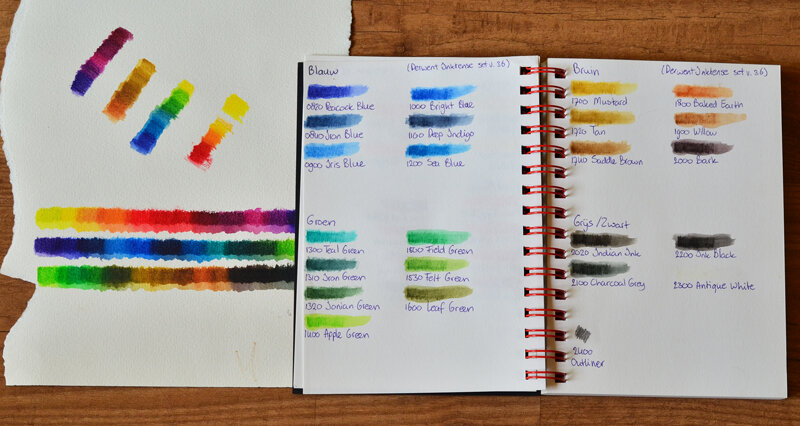 Blauw (Derwent Inktense set v. 36)
0820 Peacock Blue
1000 Bright Blue
0840 Iron Blue
1100 Deep Indigo
0900 Iris Blue
1200 Sea Blue
Groen
1300 Teal Green
1500 Field Green
1310 Iron Green
1530 Felt Green
1320 Ionian Green
1600 Leaf Green
1400 Apple Green
Bruin (Derwent Inktense set v. 36)
1700 Mustard
1800 Baked Earth
1720 Tan
1900 Willow
1740 Saddle Brown
2000 Bark
Grijs/Zwart
2020 Indian Ink
2200 Ink Black
2100 Charcoal Grey
2300 Antique White
2400
Outliner